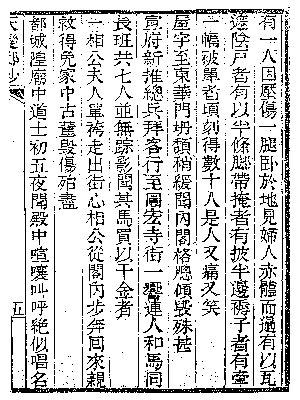 有一人因壓傷一腿臥於地見婦人赤體而過有以瓦
遮陰戶者有以半條腳帶掩者有披半邊褥子者有牽
一幅破單者頃刻得數十人是人又痛又笑
屋宇至東華門坍頹稍緩閣內閣格牕傾毀殊甚
宣府新推總兵拜客行至圓宏寺街一響連人和馬同
長班共七人並無踪影聞其馬買以千金者
一相公夫人單袴走出街心相公從閣內步奔回來親
救得免家中古董毀傷殆盡
都城隍廟中道士初五夜聞殿中喧嚷叱呼絕似唱名
天變邸抄
五